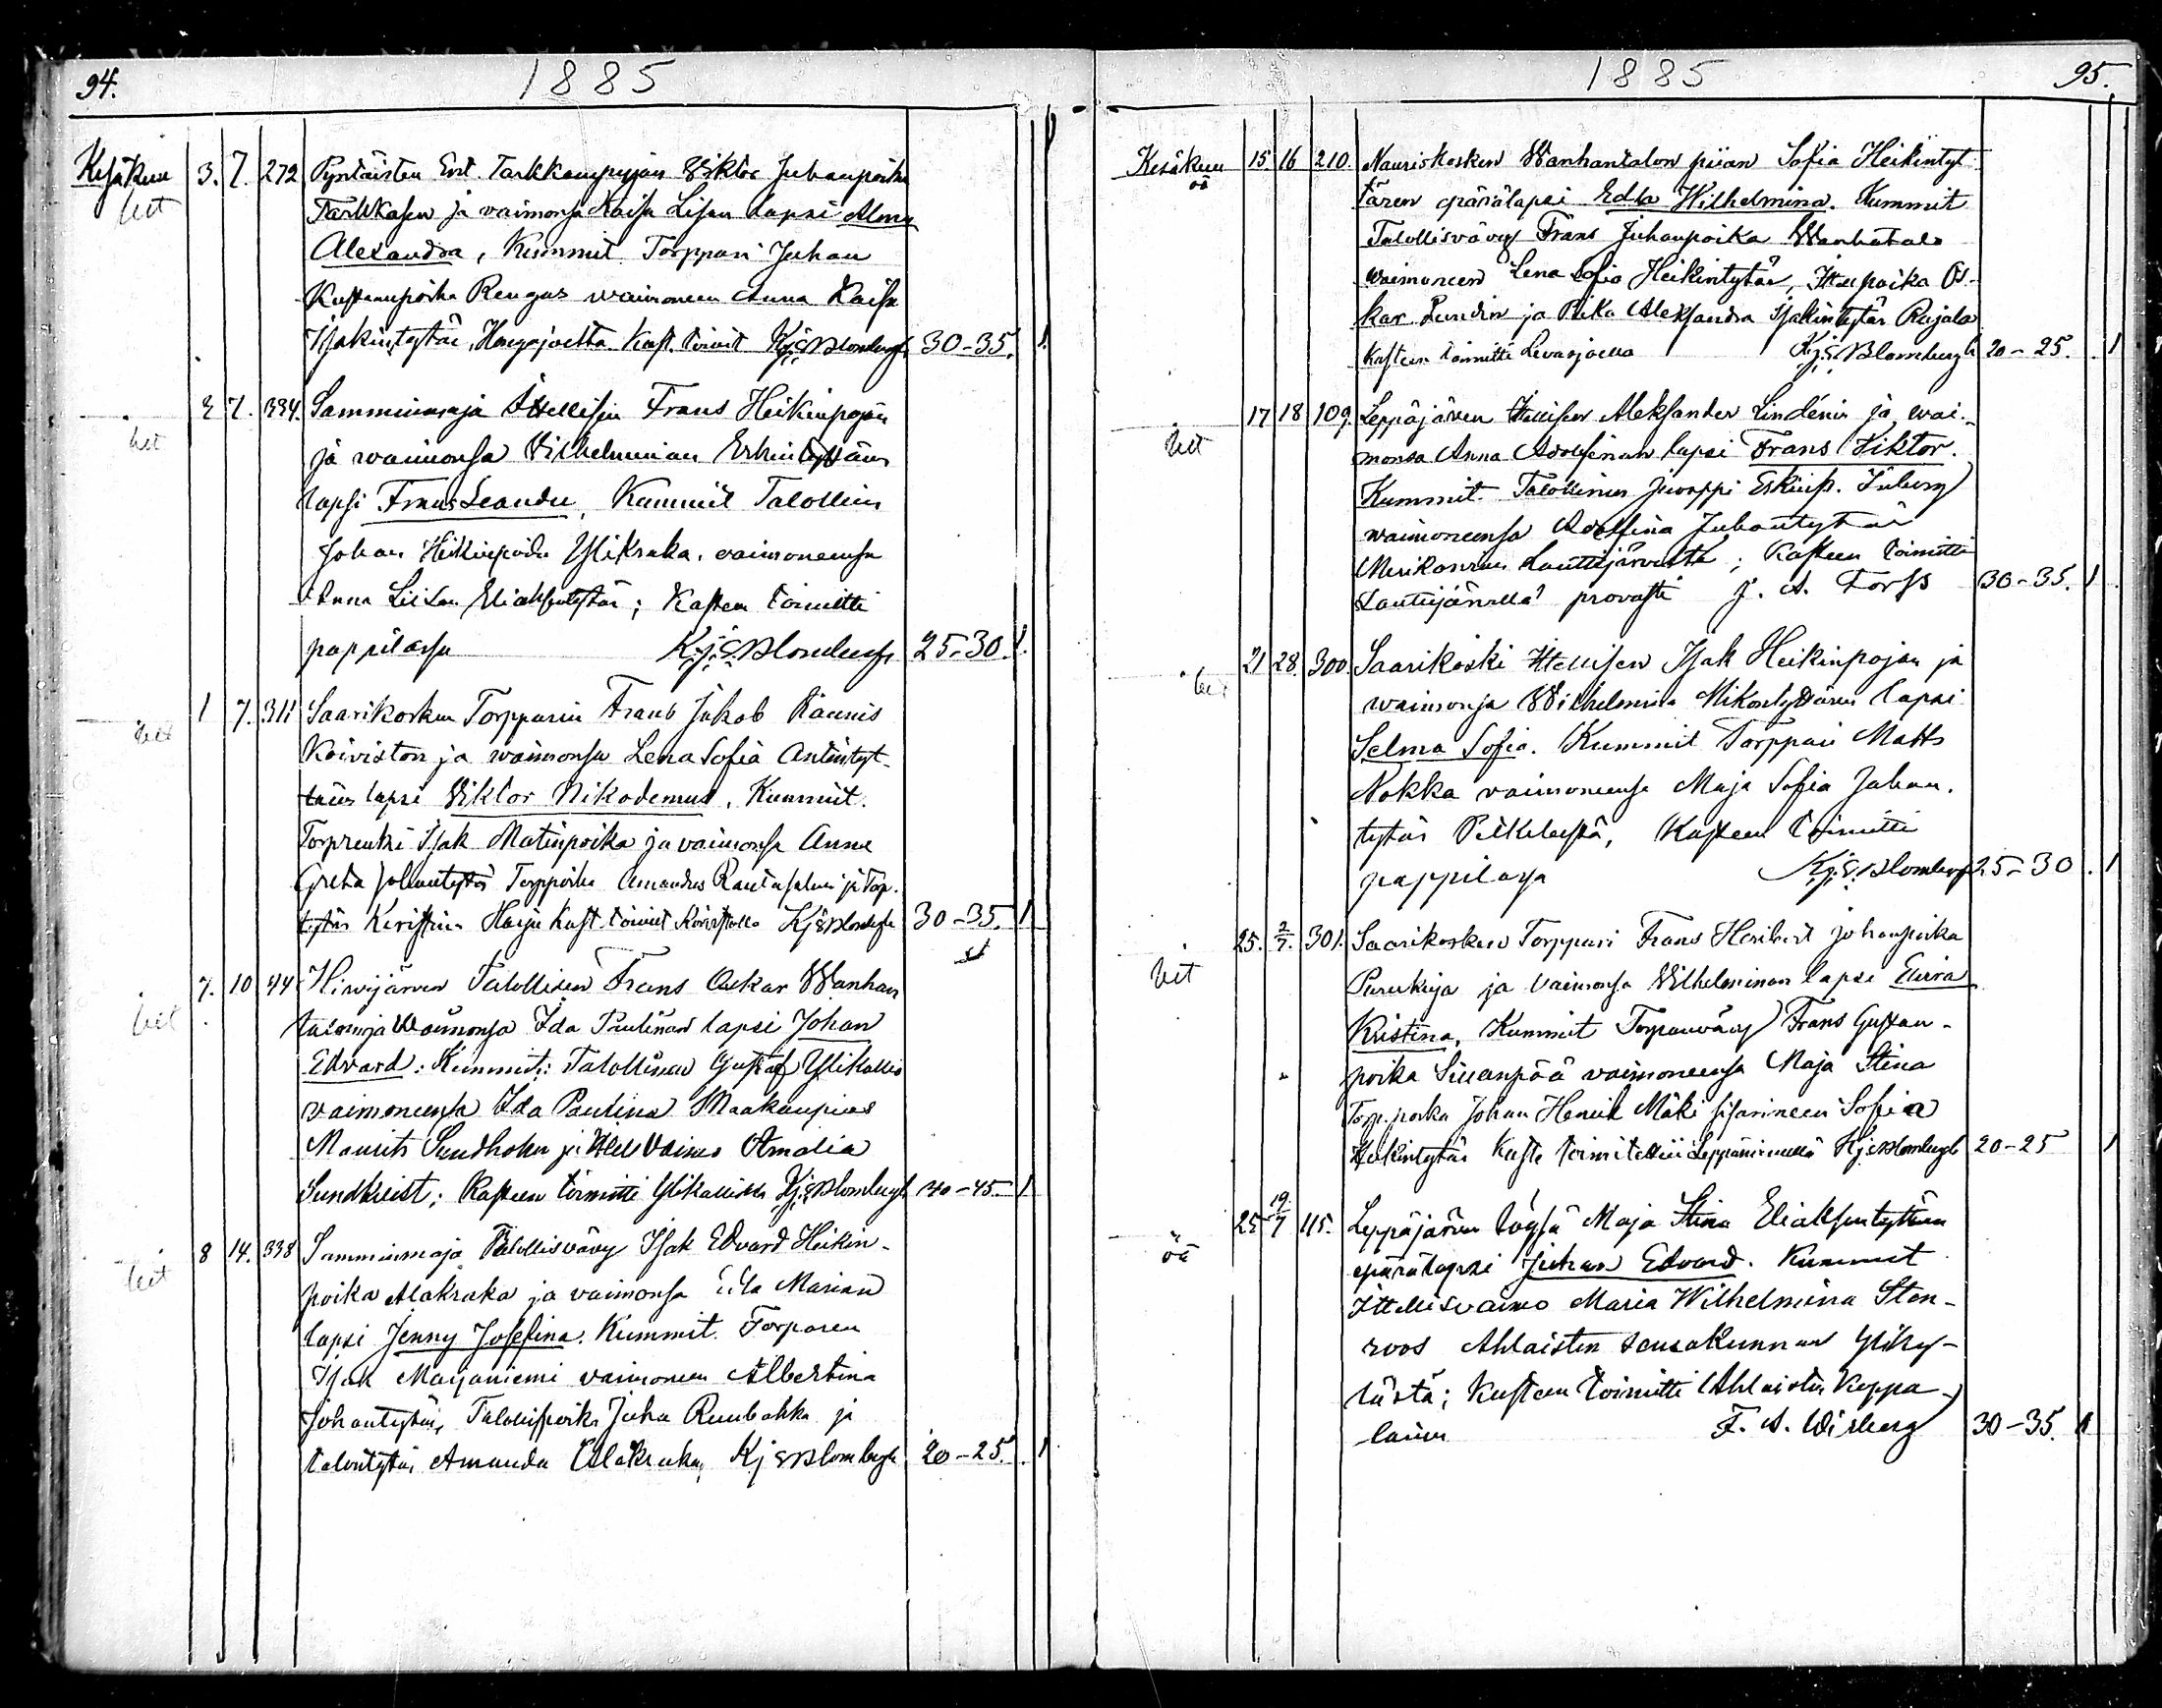 94.
1885
Kesäkuu 3. 7. 272 Pyntäisten Ent. Tarkkampujan Viktor Juhanpoika
bit Tarkkasen ja vaimonsa Kaisa Lisan lapsi Alma
Alexandra, Kummit Torppari Juhan
Kustaanpoika Rengas waimoneen Anna Kaisa
Isakintytär, Hongojoelta Kast. toimit Kj. E Blombergh 30-35. 1.
3 7. 334. Samminmaja Ittellisen Frans Heikinpojan
bit ja waimonsa Vilhelminan Erkintyttären
lapsi Frans Leander, Kummit Talollinen
Johan Heikinpoika Ylikraka, vaimoneensa
Anna Liisan Eliaksentytär; Kasteen toimitti
pappilassa Kj. E Blombergh 25-30. 1.
1 7. 311 Saarikosken Torpparin Frans Jakob Kaunis
bit Koiviston ja waimonsa Lena Sofia Antintyt-
tären lapsi Viktor Nikodemus, Kummit.
Isak Matinpoika ja vaimonsa Anna
Greta Johantytär Torppoika Amandus Rautasalmi ja Torp.
tytär Keristina Harju Kast. toimit Koivistolla Kj E Blombergh 30-35. 1
7. 10 44 Hirvijärven Talollisen Frans Oskar Wanhan
bit talon ja Waimonsa Ida Paulinan lapsi Johan
Edvard: Kummit: Talollinen Gustaf Ylikallio
vaimoneensa Ida Paulina Maakaupias
Maurits Sundholm ja Itell Vaimo Amalia
Sundkvist; Kasteen toimitti Ylikalliolla Kj. E Blombergh 40-45. 1
8 14. 338 Samminmaja Talollisvävy Isak Edvard Heikin-
bit poika Alakraka ja vaimonsa Eda Marian
lapsi Jenny Josefina. Kummit. Torparen
Isak Marjaniemi vaimoneen Albertina
Johantytär, Talollispoika Juha Ruubakka ja
talontytär Amanda Alakraka, Kj E Blombergh 20-25. 1
1885
95.
Kesäkuu 15. 16 210. Nauriskosken Wanhantalon piian Sofia Heikintyt-
öä tären äpärälapsi Edla Wilhelmina. Kummit
Talollisvävy Frans Juhanpoika Wanhatalo
waimoneen Lena Sofia Heikintytär, Ittelpoika Os-
kar Lundin ja Piika Aleksandra Isakintytär Rajala
Kasteen toimitti Levasjoella Kj. E Blombergh 20-25. 1
17 18 109. Leppäjärven Itellisen Aleksander Lindénin ja wai-
bit monsa Anna Adolfinan lapsi Frans Viktor.
Kummit. Talollinen Juorppi Eskinp. Inberg
waimoneensa Adolfina Juhantytär
Merikarvian Lauttijärveltä; Kasteen toimitti
Lauttijärvellä provasti J. A. Forss 30-35. 1
21 28. 300. Saarikoski Ittellisen Isak Heikinpojan ja
bit waimonsa Wilhelmina Mikontyttären lapsi
Selma Sofia. Kummit Torppari Matts
Nokka vaimoneensa Maja Sofia Johan-
tytär Peikelastä, Kasteen toimitti
pappilassa Kj. E. Blombergh 25-30. 1
25. 2/7. 301. Saarikosken Torppari Frans Heribert Johanpoika
bit Purukuja ja Vaimonsa Vilhelminan lapsi Elvira
Kristina, Kummit Torpanvävy Frans Gustaan-
poika Sillanpää vaimoneensa Maja Stina
Torp. poika Johan Henrik Mäki sisarineen Sofia
Heikintytär Kaste toimitettiin Leppäniemellä Kj. E Blombergh 20-25 1
25 19/7 115. Leppäjärven loysä Maja Stina Eliaksentyttären
öä äpärälapsi Juhan Edvard. Kummit
Ittellisvaimo Maria Wilhelmina Sten-
roos Ahlaisten seurakunnan Yliky-
lästä; Kasteen toimitti Ahlaisten Kappa-
lainen F. A. Wisberg 30-35. 1